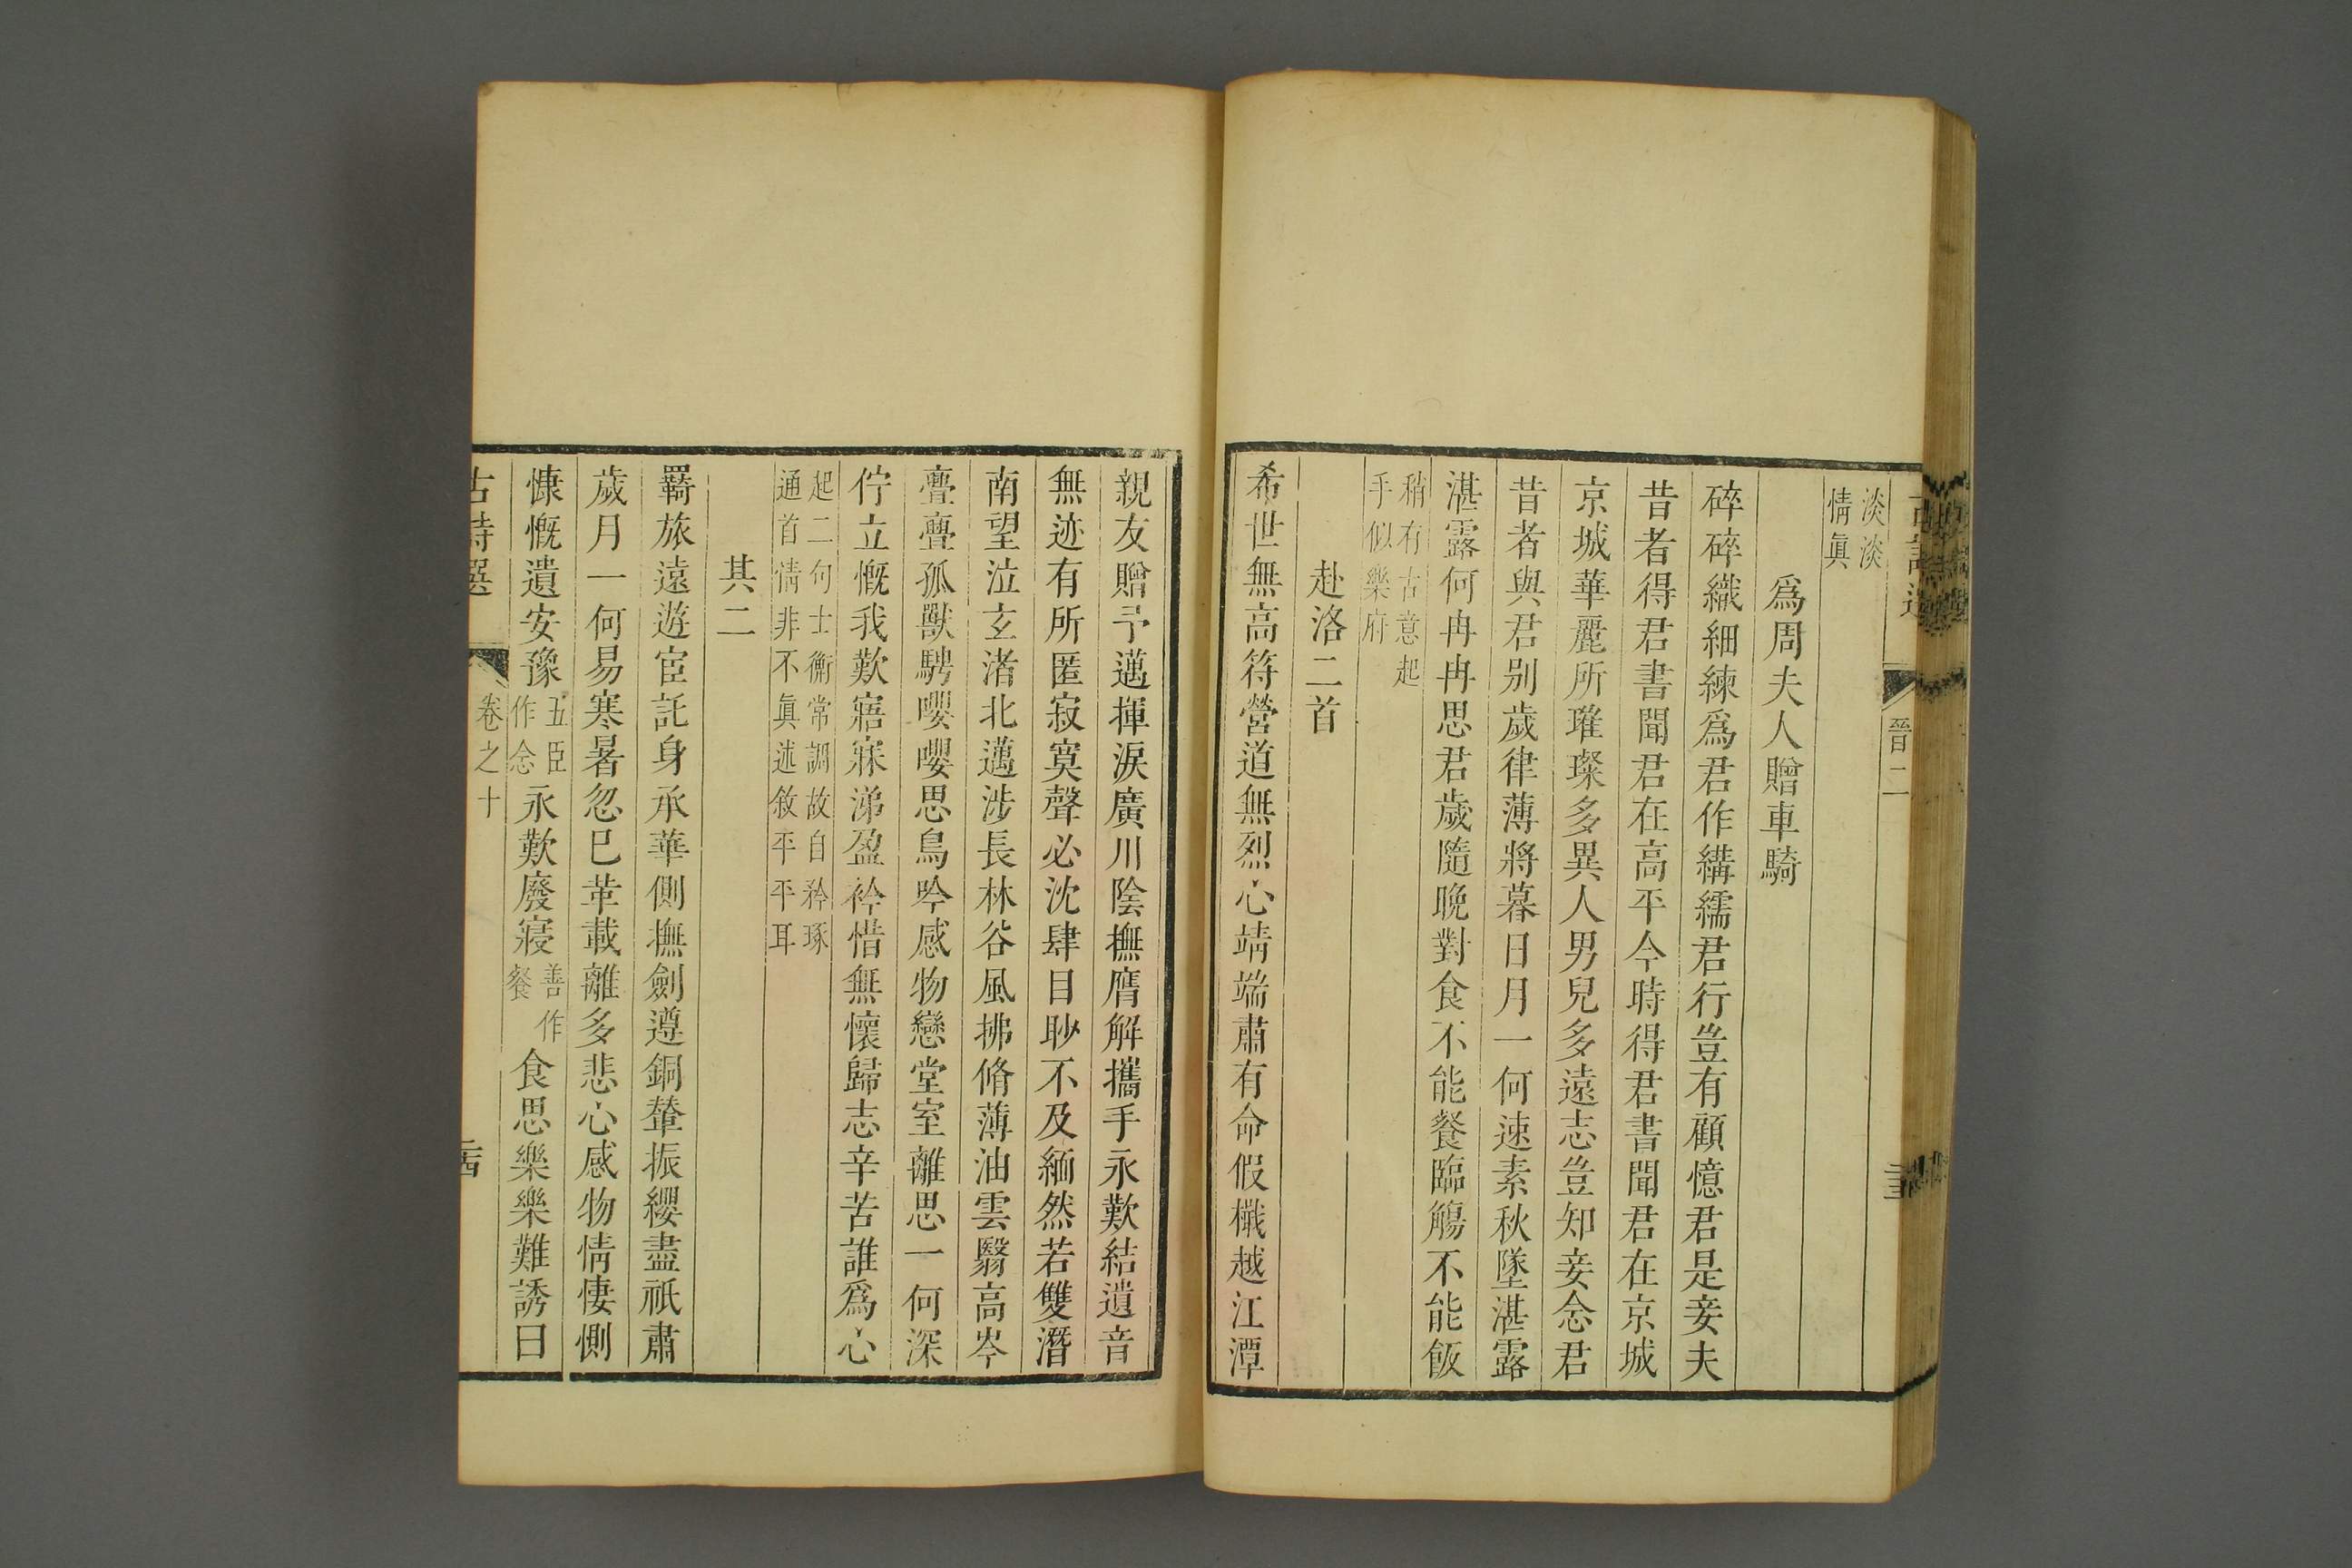 晉二
淡淡
情眞
爲周夫人贈車騎
碎碎織細練爲君作褠繻君行豈有顧憶君是妾夫
昔者得君書聞君在高平今時得君書聞君在京城
京城華麗所璀璨多異人男兒多遠志豈知妾念君
昔者與君别歲律薄將暮日月一何速素秋墜湛露
湛露何冉冉思君歲隨晚對食不能餐臨觴不能飯
稍有古意起
手似樂府
赴洛二首
希世無高符營道無烈心靖端肅有命假檝越江潭
親友贈予邁揮淚廣川陰撫膺解攜手永歎結遺音
無迹有所匿寂寞聲必沈肆目眇不及緬然若雙潛
南望泣玄渚北邁涉長林谷風拂脩薄油雲翳高岑
亹亹孤獸騁嚶嚶思鳥吟感物戀堂室離思一何深
佇立慨我歎寤寐涕盈衿惜無懷歸志辛苦誰爲心
起二句士衡常調故自矜琢
通首情非不眞述敘平平耳
其二
羇旅遠遊宦託身承華側撫劍遵銅輦振纓盡祇肅
歲月一何易寒暑忽已革載離多悲心感物情悽惻
慷慨遺安豫五臣作念永歎廢寢善作餐食思樂樂難誘曰
古詩選
卷之十